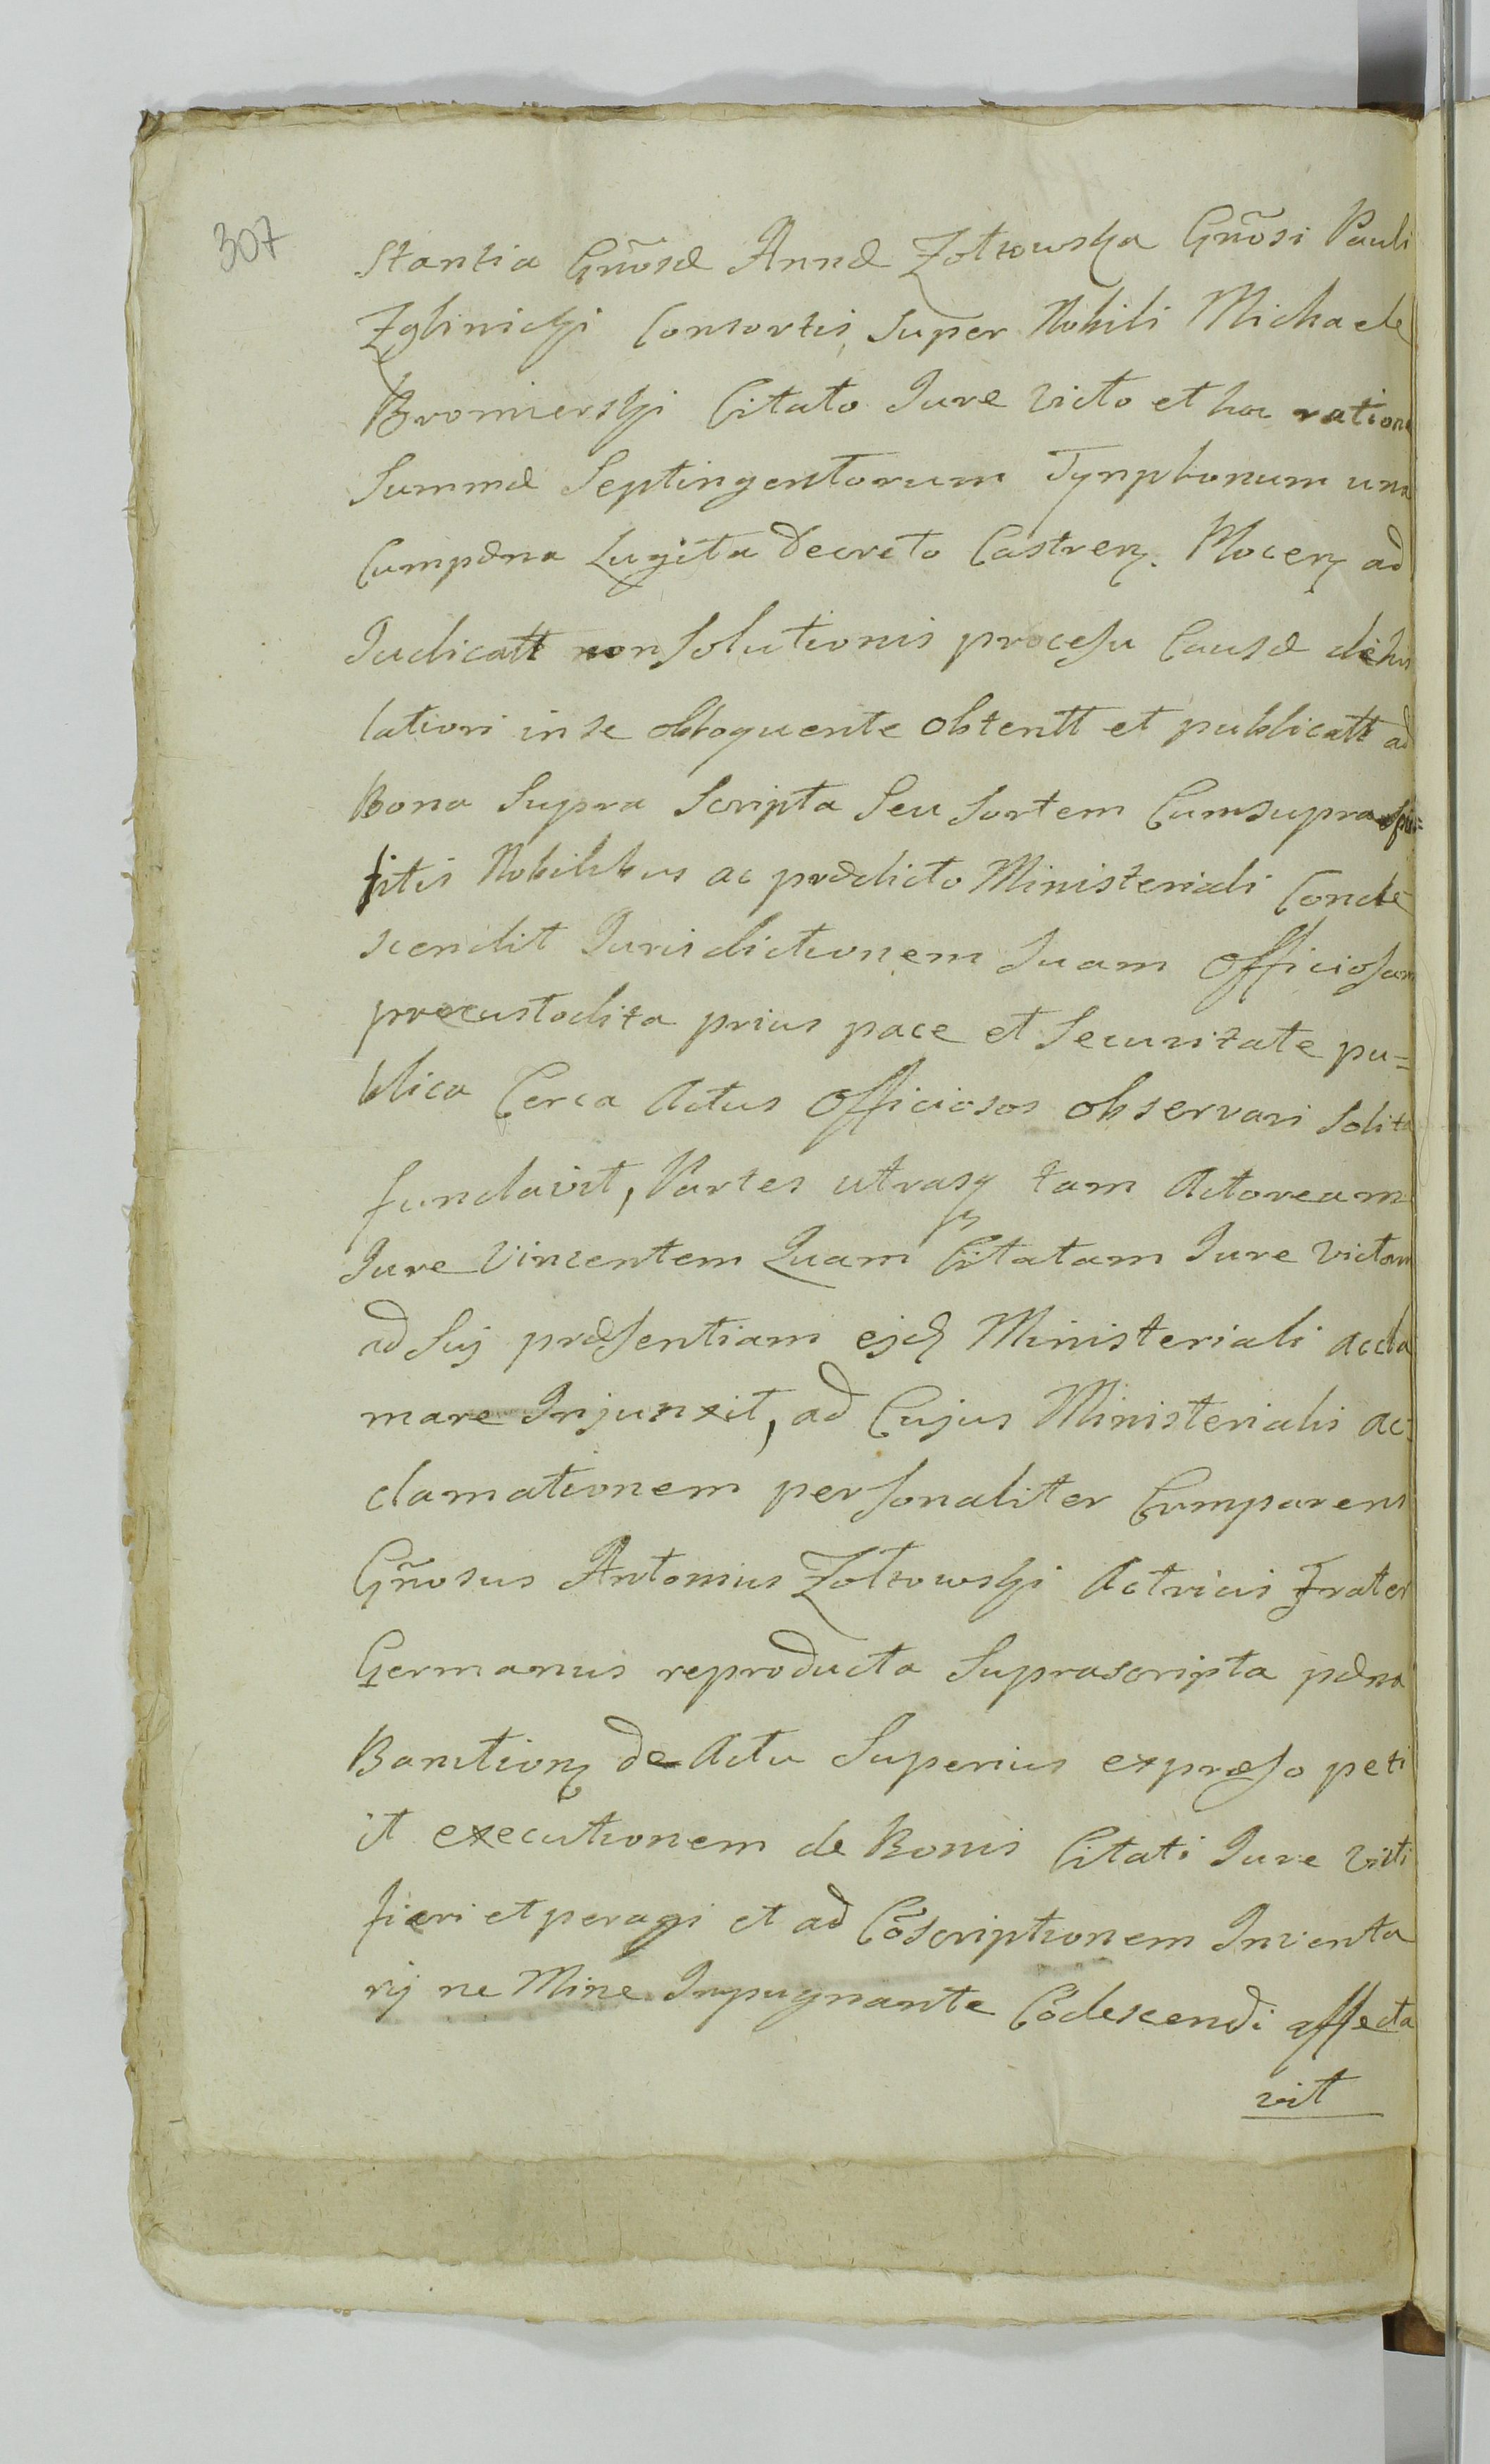 307
Stantia Gñosæ Annæ Zołtowska Gñosi Pauli
Zglinicki Consortis, Super Nobili Michaele
Bromierski Citato Jure victo et hac ratione
Summæ Septingentorum Tynphonum una
Cumpæna Lugita Decreto Castren. Plocen ad
Judicatt non Solutionis procesu Causæ
lationi in se obloquente obtentt et publicatt ad
Bona Supra Scripta Seu Sortem Cumsupra
fitis Nobilibus ac prædicto Ministeriali Conde
scendit Jurisdictionem Suam Officiosam
precustodita prius pace et Securitate pu=
blica Cerca Actus Officiosos observari Solita
fundavit, Partes utrasq tam Actoream
Jure Vincentem Quam Citatam Jure victam
ad Sui præsentiam ejd Ministeriali accla
mare Injunxit, ad Cujus Ministerialis ac=
clamationem personaliter Comparens
Gñosus Antonius Zołtowski Actricis Frater
Germanus reproducta Suprascripta pæna
Banition de Actu Superius expreso peti
it executionem de Bonis Citati Jure victi
fieri et peragi et ad Cõscriptionem Inventa
rij ne Mine Inpugnante Cõdescendi affecta
vit